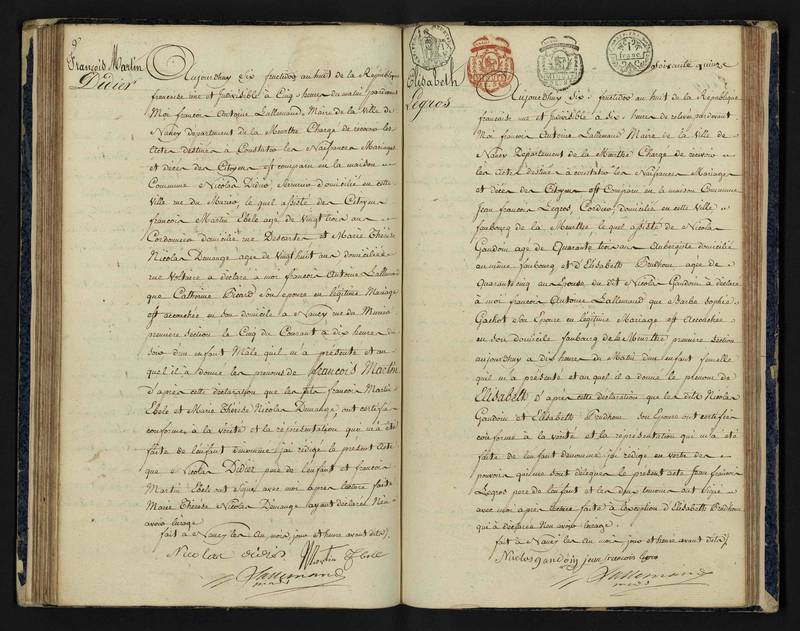 François Martin
Didier
Aujourdhuy Six fructidor an huit de la République
française une et Indivisible à Cinq heures du matin pardevant
Moi françois Antoine Lallemand, Maire de la Ville de
Nancy département de la Meurthe Chargé de recevoir les
Actes destinés à Constater les Naissances Mariages
et décès des Citoyens est comparu en la maison
Commune Nicolas Didier, domicilié en cette
Ville rue du Museo, le quel assisté des Citoyens
françois Martin Ebole agé de Vingt trois ans
Cordonnier domicilié rue Descartes et Marie Thérèse
Nicolas Dumange agée de Vingt huit ans domiciliée
rue Voltaire a déclaré à moi françois Antoine Lallemand
que Catherine Picard Son épouse en légitime Mariage
est accouchée en son domicile à Nancy rue du Museo
première section le Cinq du Courant à dix heures du
soir d'un enfant Mâle qu'il m'a présenté et au
quel il a donné les prénoms de françois Martin
d'après cette déclaration que les dits françois Martin
Ebole et Marie Thérèse Nicolas Dumange, ont certifié
conforme à la vérité et la représentation qui m'a été
faite de l'enfant dénommé j'ai rédigé le présent acte
que Nicolas Didier père de l'enfant et françois
Martin Ebole ont Signé avec moi après lecture faite
Marie Thérèse Nicolas Dumange ayant déclaré N'en
avoir lusage
fait à Nancy les An, mois, jour et heure avant dits
Nicolas didier Martin Ebole
Lallemand
Elisabeth
Legros
1 franc
soixante quinze
Aujourdhuy Six fructidor an huit de la République
française une et indivisible à Six heures de relevée pardevant
Moi françois Antoine Lallemand Maire de la Ville de
Nancy Département de la Meurthe Chargé de recevoir
les Actes destinés à constater les Naissances Mariages
et décès des Citoyens est Comparu en la maison Commune
Jean françois Legros, Cordier, domicilié en cette Ville
faubourg de la Meurthe le quel assisté de Nicolas
Gandoin age de Quarante trois ans Aubergiste domicilié
au même faubourg et d'Elisabeth Prudhom agée de
Quarante cinq ans Epouse du dit Nicolas Gandoin à déclaré
à moi françois Antoine Lallemand que Barbe Sophie
Gachot Son Epouse en légitime Mariage est Accouchée
en son domicile faubourg de la Meurthe première Section
aujourdhuy a dix heures du Matin d'un Enfant femelle
qu'il m'a présenté et au quel il a donné le prénom de
Elisabeth d'après cette déclaration que les dits Nicolas
Gandoin et Elisabeth Prudhom Son Epouse ont certifiée
conforme à la vérité et la représentation qui m'a été
faite de l'enfant dénommé j'ai rédigé en vertu des
pouvoirs qui me sont délégués le présent acte Jean françois
Legros père de l'enfant et les deux témoins ont Signé
avec moi après lecture faite à l'exception d'Elisabeth Prudhom
qui à déclaré N'en avoir lusage.
fait à Nancy les An mois jour et heure avant dits
Nicolas gandoin jean francois legro
Lallemand